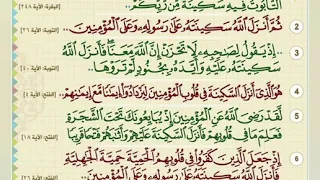 التَّابُوتُ فِيهِ سَكِينَةٌ مِّن رَّبِّكُمْ.. البقرة: الآية ٢٤٨
2 ثُمَّ أَنزَلَ اللَّهُ سَكِينَتَهُ عَلَىٰ رَسُولِهِ وَعَلَى الْمُؤْمِنِينَ.. التوبة: الآية ٢٦
3 ..إِذْ يَقُولُ لِصَاحِبِهِ لَا تَحْزَنْ إِنَّ اللَّهَ مَعَنَا فَأَنزَلَ اللَّهُ
سَكِينَتَهُ عَلَيْهِ وَأَيَّدَهُ بِجُنُودٍ لَّمْ تَرَوْهَا.. التوبة: الآية ٤٠
4 هُوَ الَّذِي أَنزَلَ السَّكِينَةَ فِي قُلُوبِ الْمُؤْمِنِينَ لِيَزْدَادُوا إِيمَانًا مَّعَ إِيمَانِهِمْ.. الفتح: الآية ٤
5 لَقَدْ رَضِيَ اللَّهُ عَنِ الْمُؤْمِنِينَ إِذْ يُبَايِعُونَكَ تَحْتَ الشَّجَرَةِ
فَعَلِمَ مَا فِي قُلُوبِهِمْ فَأَنزَلَ السَّكِينَةَ عَلَيْهِمْ وَأَثَابَهُمْ فَتْحًا قَرِيبًا الفتح: الآية ١٨
6 إِذْ جَعَلَ الَّذِينَ كَفَرُوا فِي قُلُوبِهِمُ الْحَمِيَّةَ حَمِيَّةَ الْجَاهِلِيَّةِ
فَأَنزَلَ اللَّهُ سَكِينَتَهُ عَلَىٰ رَسُولِهِ وَعَلَى الْمُؤْمِنِينَ.. الفتح: الآية ٢٦